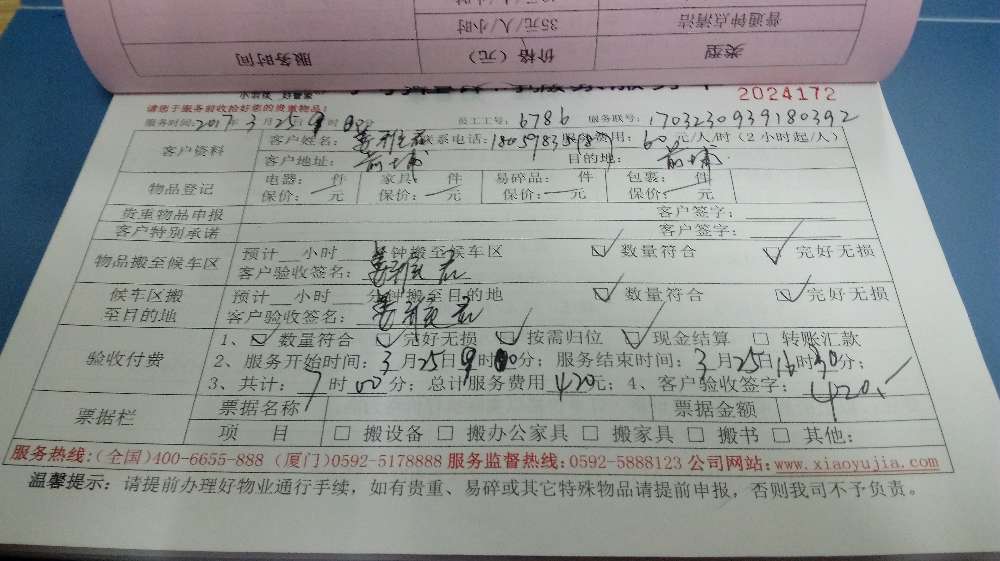 35元/人/小时
普通钟点清洁
服务时间 价格（元） 类型
2024172
请您于服务前收拾好您的贵重物品！
服务时间：2017年3月25日9时00分 员工工号：6786 服务联号：1703230939180392
客户资料
客户姓名： 联系电话： 服务费用：60元/人/时（2小时起/人）
客户地址：前埔 目的地：前埔
物品登记
电器： 件 家具： 件 易碎品： 件 包装： 件
保价： 元 保价： 元 保价： 元 保价： 元
贵重物品申报 客户签字：
客户特别承诺 客户签字：
物品搬至候车区
预计__小时__分钟搬至候车区 ☑ 数量符合 ☑ 完好无损
客户验收签名：
候车区搬至目的地
预计__小时__分钟搬至目的地 ☑ 数量符合 ☑ 完好无损
客户验收签名：
验收付费
1、☑ 数量符合 ☑ 完好无损 ☑ 按需归位 ☑ 现金结算 □ 转账汇款
2、服务开始时间：3月25日9时00分；服务结束时间：3月25日16时30分；
3、共计：7时00分；总计服务费用420元；4、客户验收签字：420.-
票据栏
票据名称 票据金额
项 目 □ 搬设备 □ 搬办公家具 □ 搬家具 □ 搬书 □ 其他：
服务热线：(全国)400-6655-888 (厦门)0592-5178888 服务监督热线：0592-5888123 公司网站：www.xiaoyujia.com
温馨提示：请提前办理好物业通行手续，如有贵重、易碎或其它特殊物品请提前申报，否则我司不予负责。